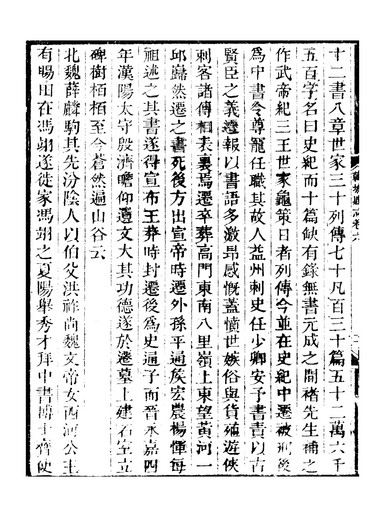 十二書八章世家三十列傳七十凡百三十篇五十二萬六千
五百字名曰史紀而十篇缺有錄無書元成之間褚先生補之
作武帝紀三王世家龜策日者列傳今並在史紀中遷被刑後
為中書令尊寵任職其故人益州刺史任少卿安予書責以古
賢臣之義遷報以書語多激昂感慨蓋憤世嫉俗與貨殖遊俠
刺客諸傳相表裏焉遷卒葬高門東南八里嶺上東望黃河一
邱巋然遷之書死後方出宣帝時遷外孫平通矦宏農楊惲每
祖述之其書遂得宣布王莽時封遷後為史通子而晉永嘉四
年漢陽太守殷濟瞻仰遺文大其功德遂於遷墓上建石室立
碑樹栢栢至今蒼然遍山谷云
北魏薛麟駒其先汾陰人以伯父洪祚尚魏文帝女西河公主
有賜田在馮翊遂徙家馮翊之夏陽舉秀才拜中書博士齊使